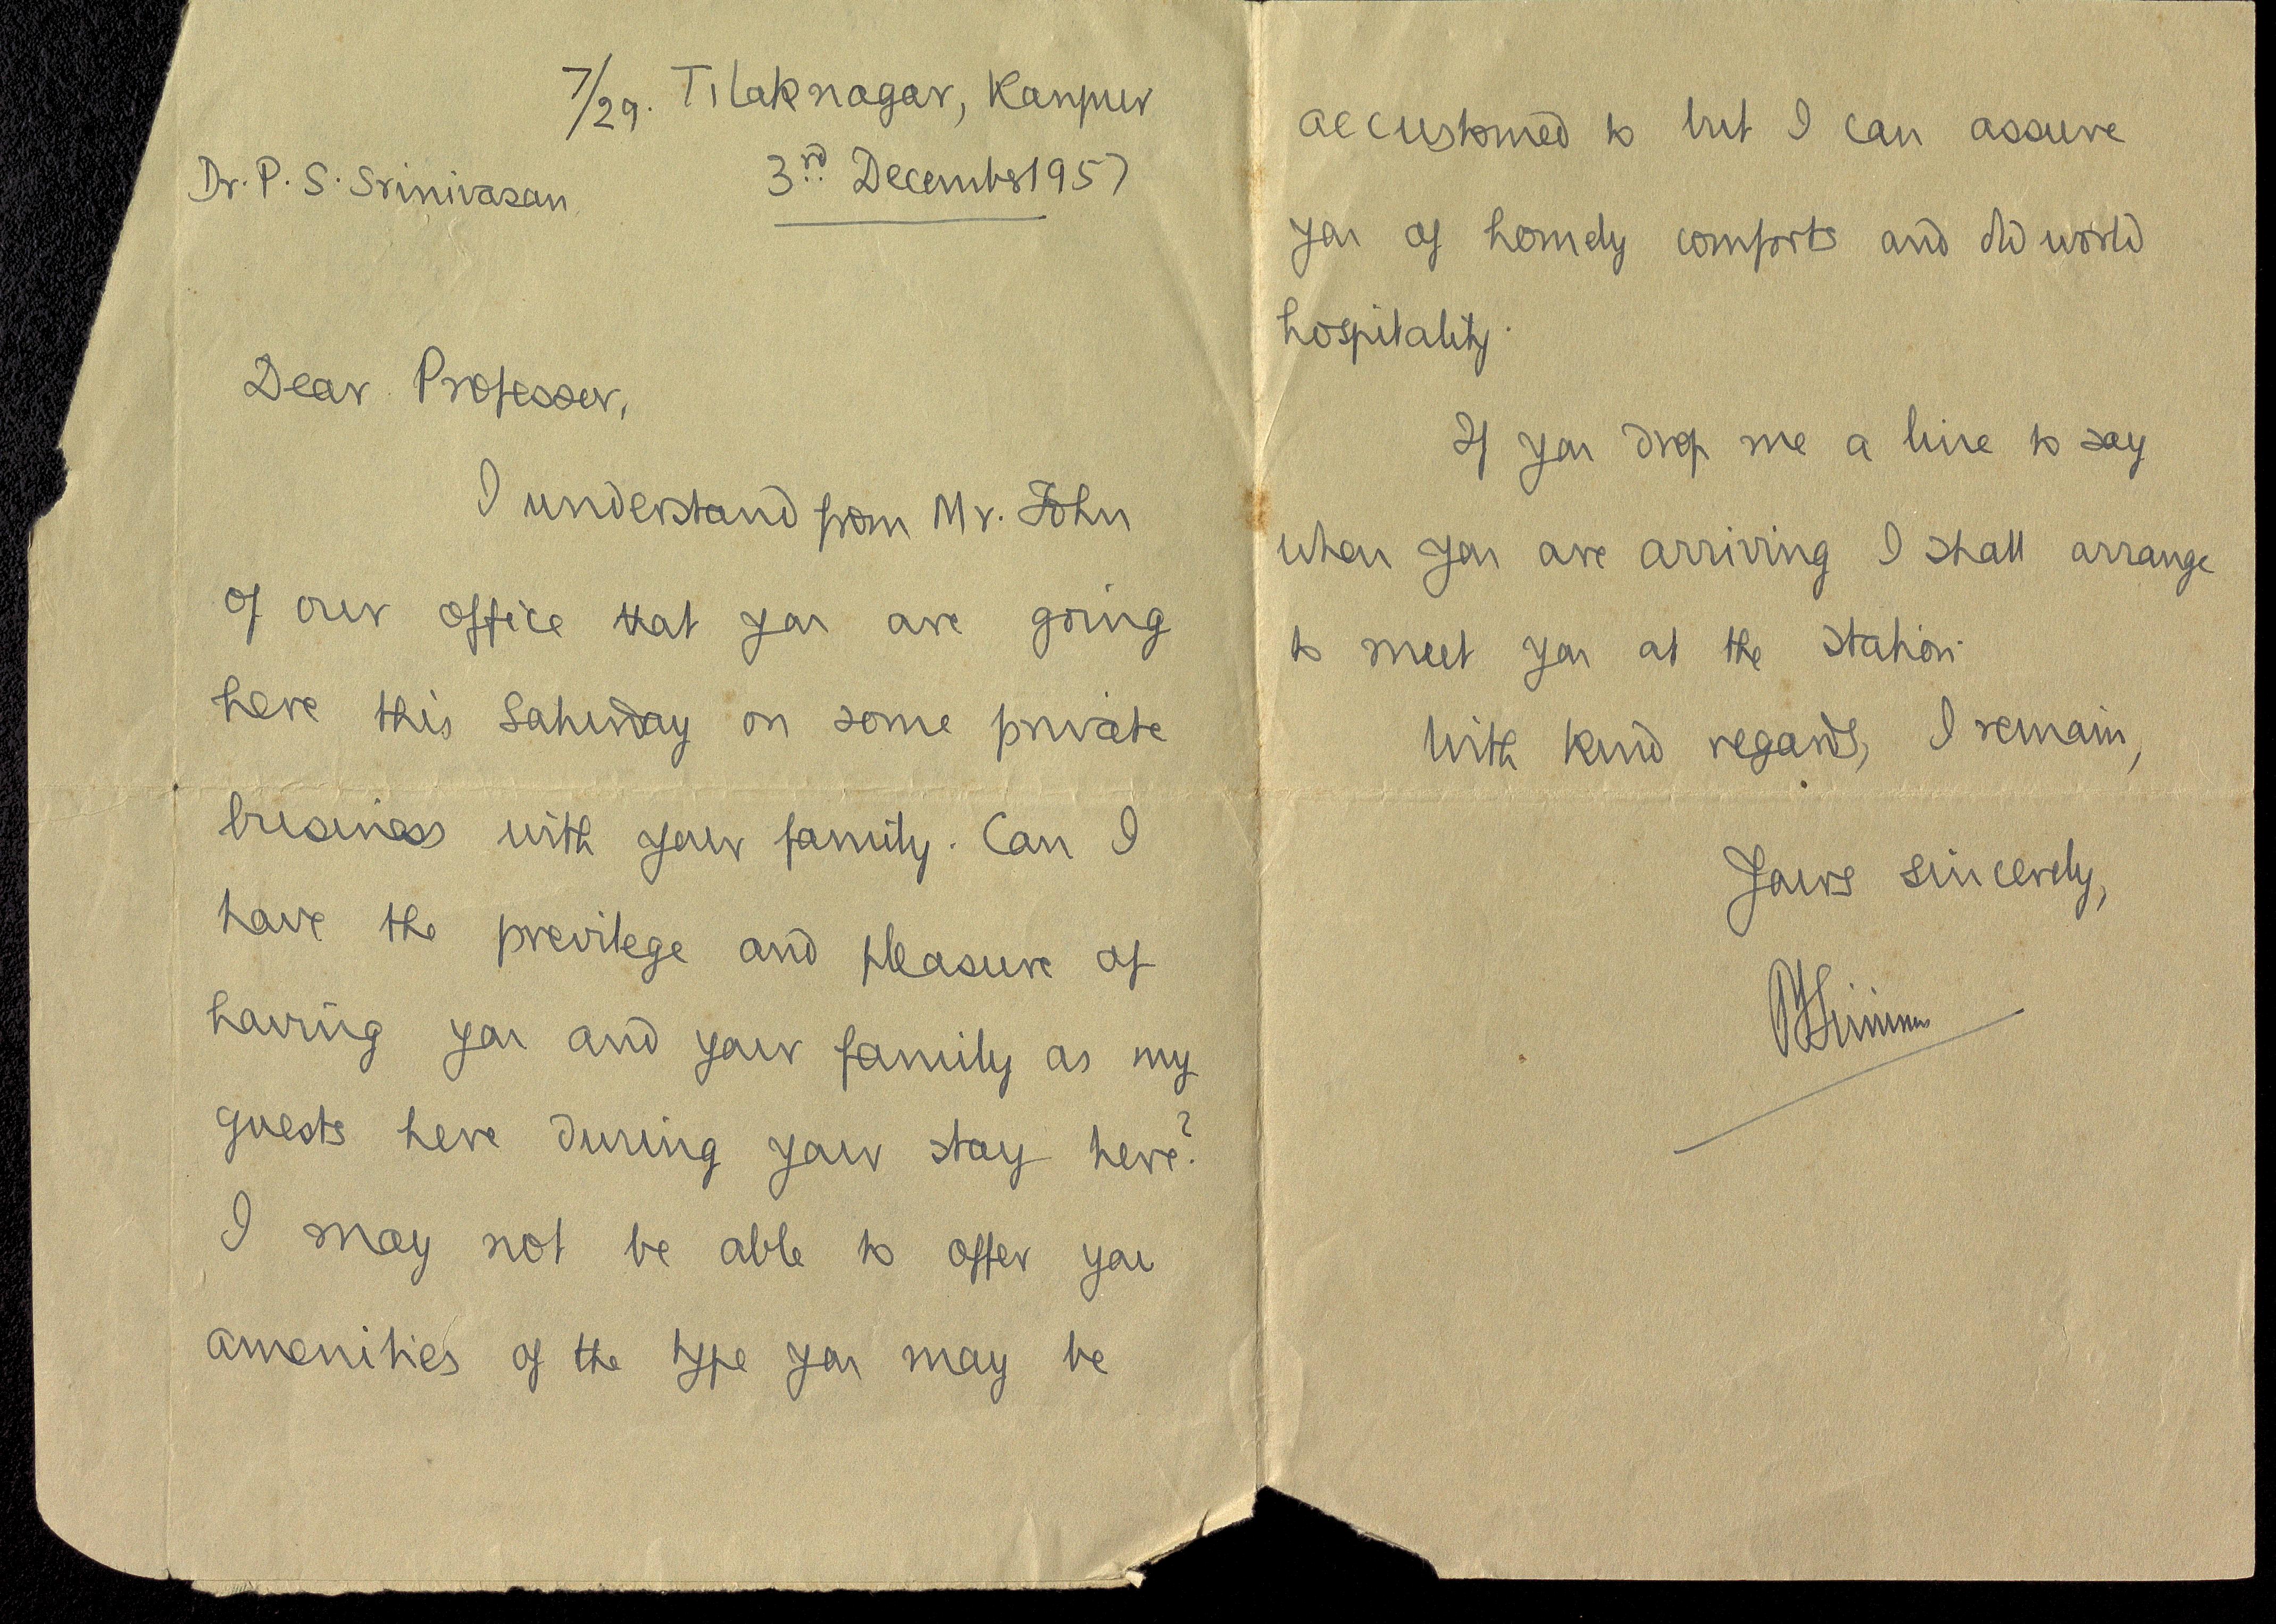 7/29. Tilaknagar, Kanpur
Dr. P. S. Srinivasan
3rd December 1957
Dear Professor,
I understand from Mr. John
of our office that you are going
here this Saturday on some private
business with your family. Can I
have the previlege and pleasure of
having you and your family as my
guests here during your stay here?
I may not be able to offer you
amenities of the type you may be
accustomed to but I can assure
you of homely comforts and old world
hospitality.
If you drop me a line to say
when you are arriving I shall arrange
to meet you at the station.
With kind regards, I remain,
Yours sincerely,